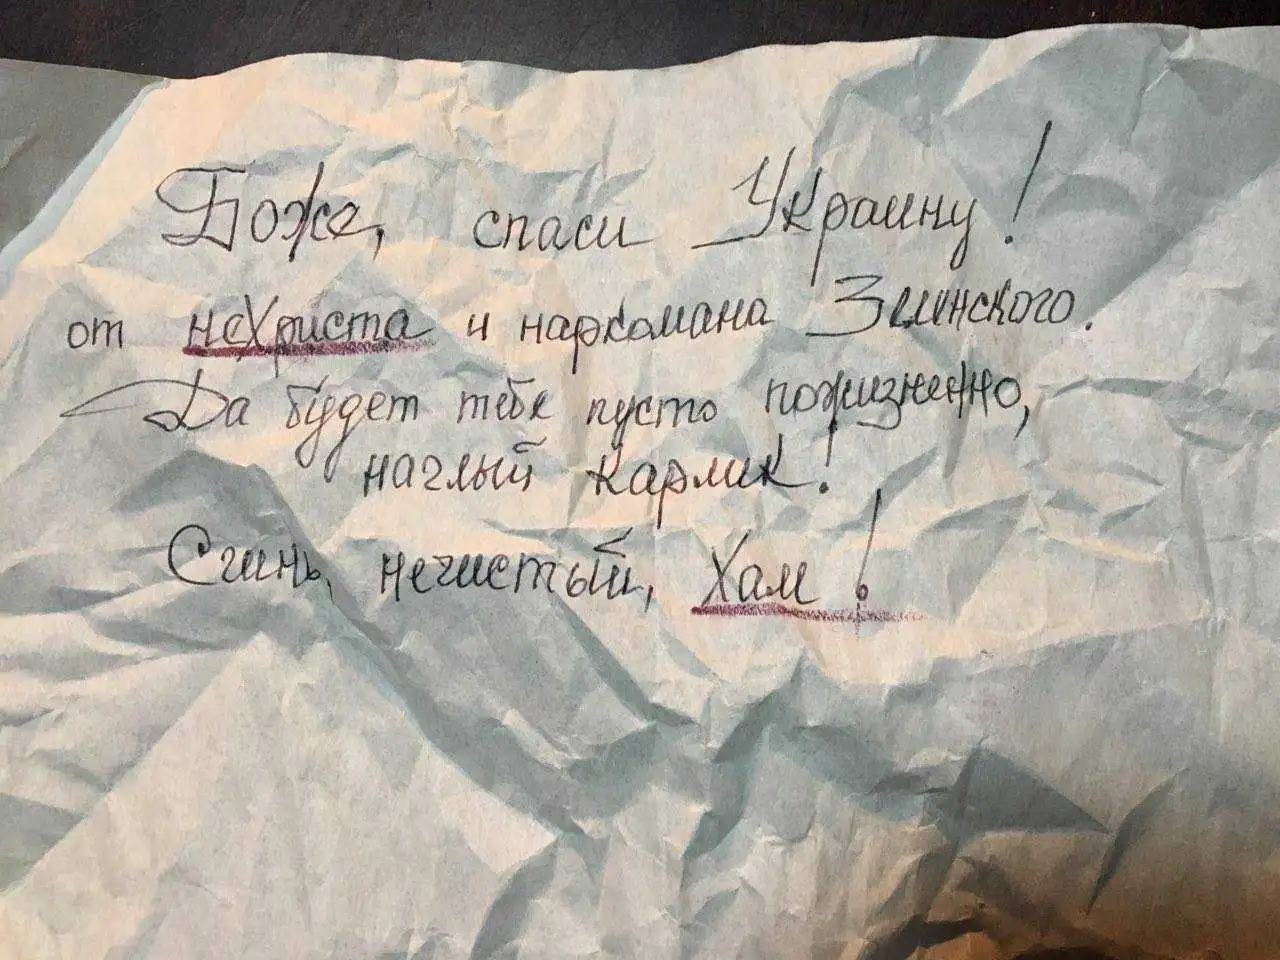 Боже, спаси Украину!
от неХриста и наркомана Зеленского.
Да будет тебе пусто пожизненно,
наглый карлик!
Сгинь, нечистый, Хам!